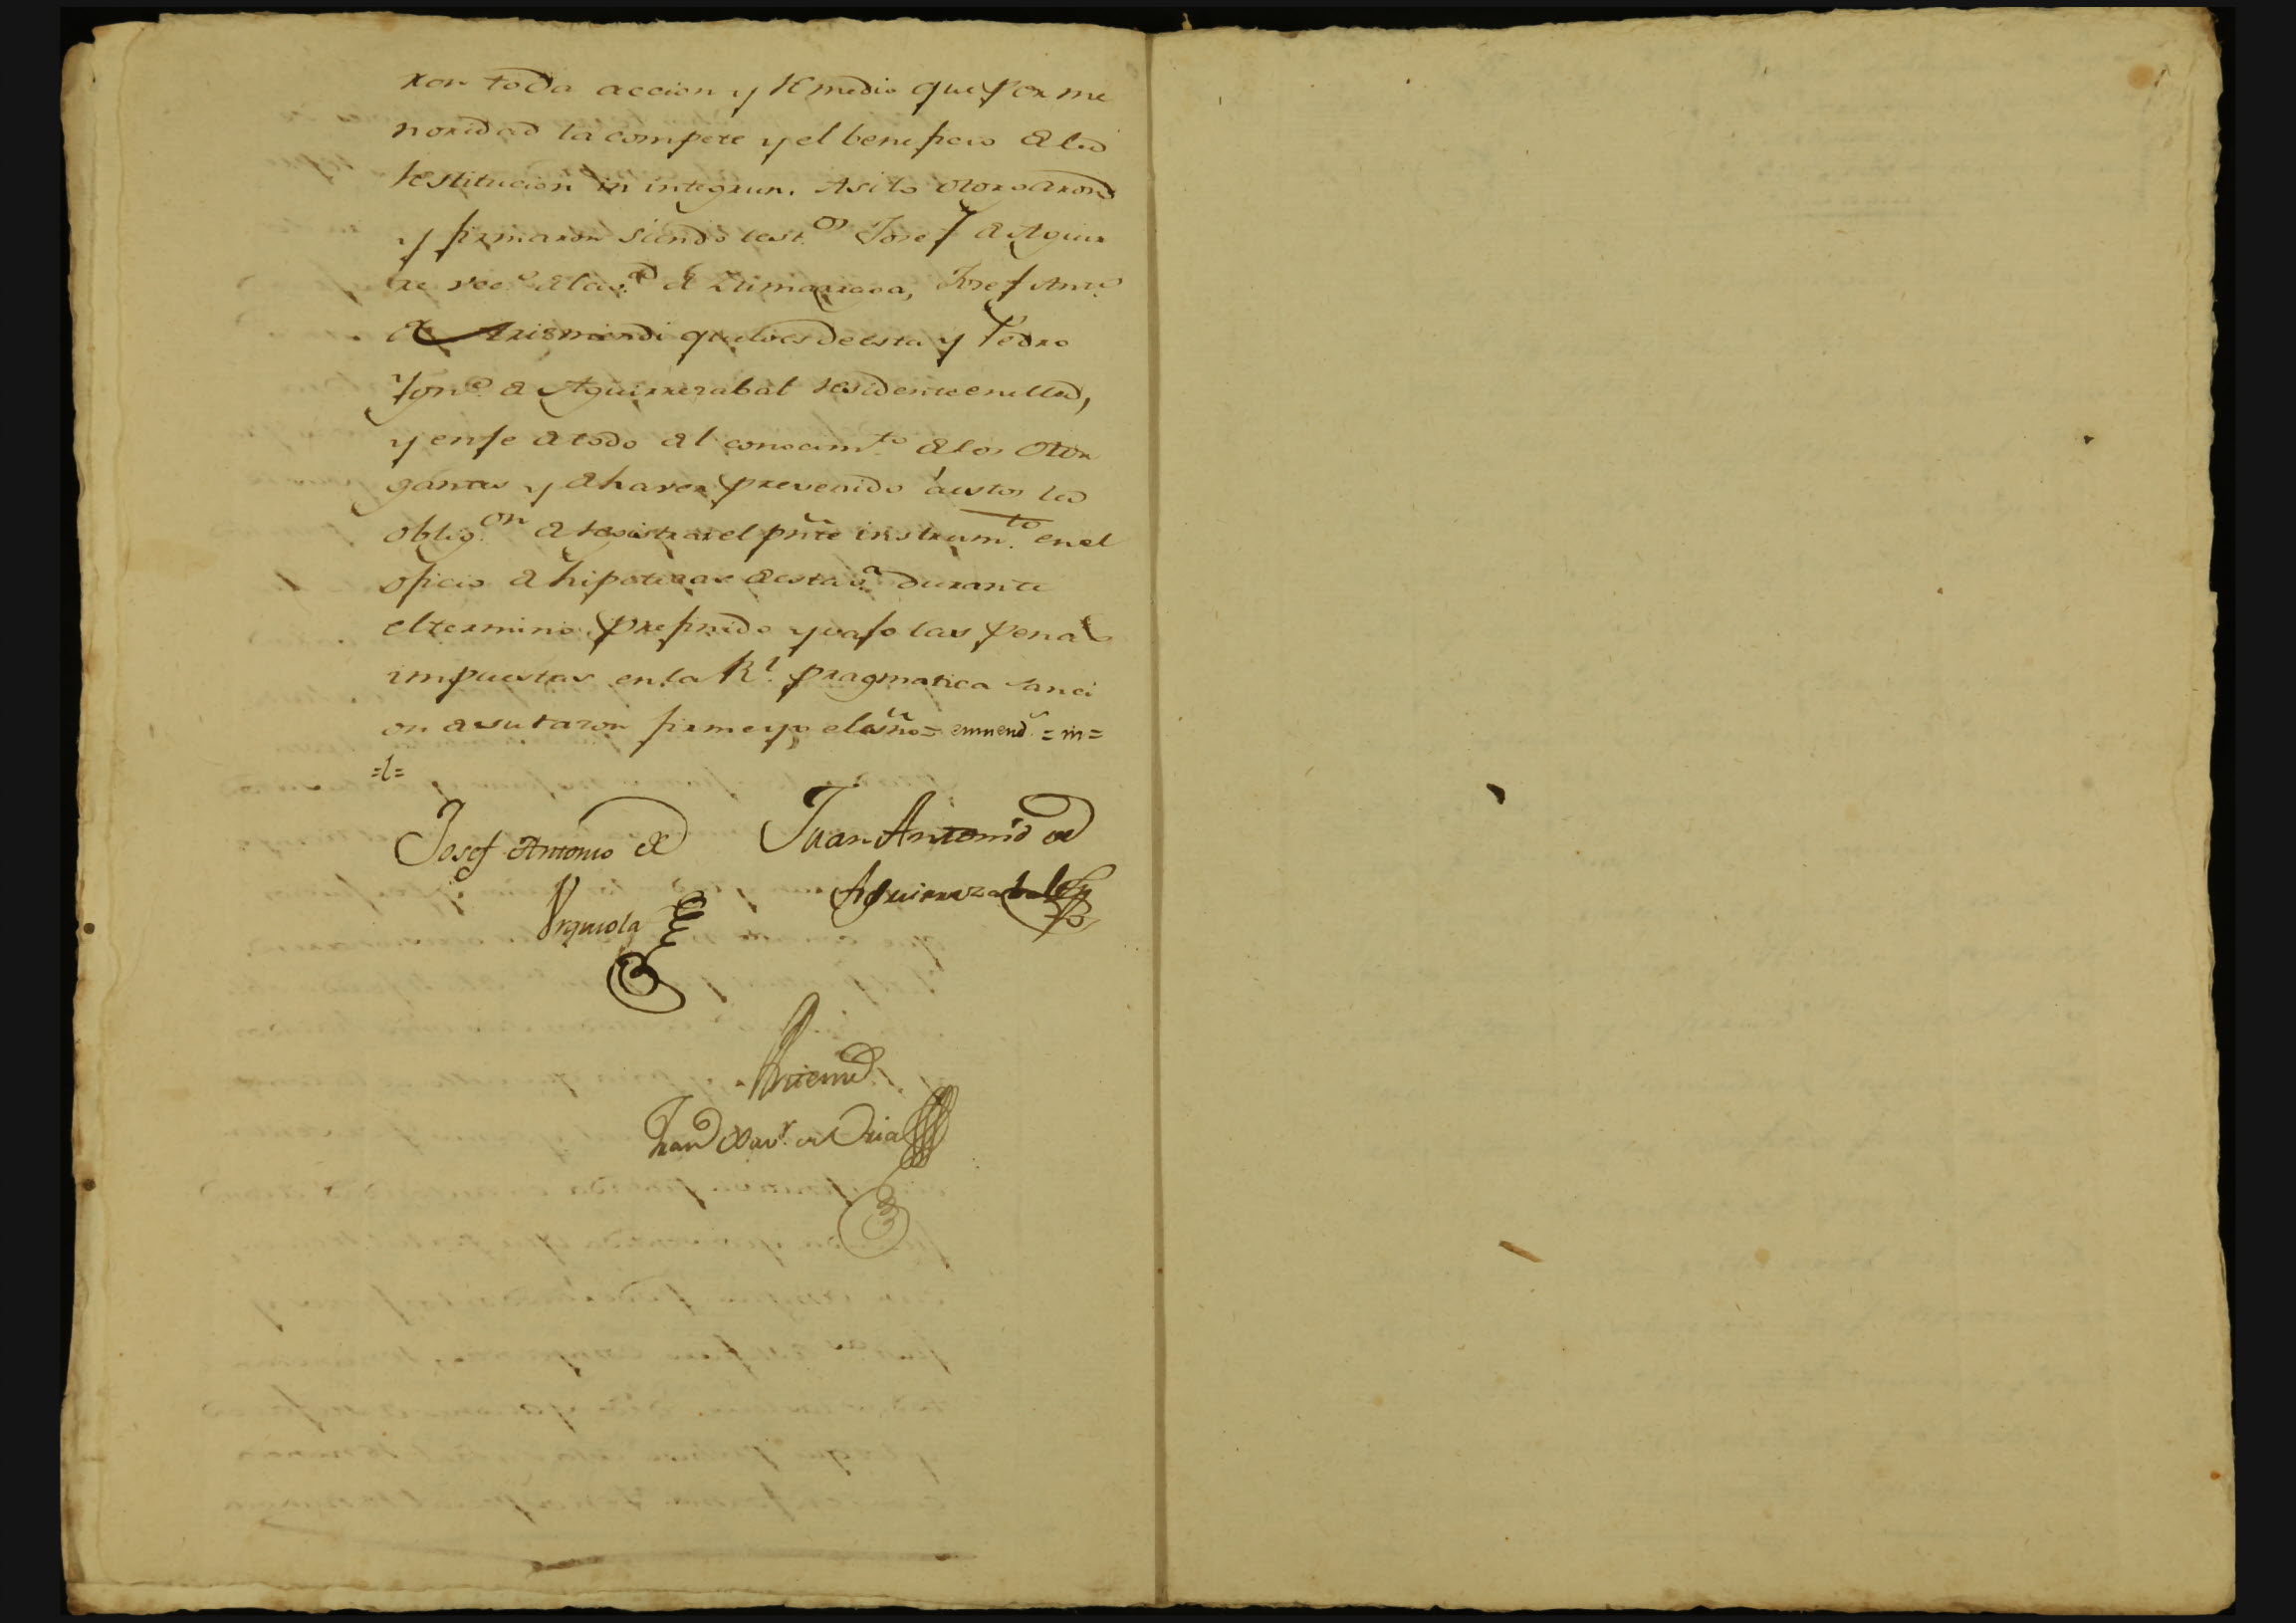 ron toda accion y remedio que por me
noridad la compete y el beneficio de la
restitucion in integrun. Asi lo otorgaron
y firmaron siendo test.os Josef de Aguir
re vec.o de la v.a de Zumarraga, Josef Ant.o
de Arismendi que lo es de esta y Pedro
Ygn.o de Aguirrezabal residente en ella,
y en fe de todo del conocim.to de los otor
gantes y de haver prevenido á estos la
oblig.on de registrar el pñte instrum.to en el
oficio de hipotecas de esta v.a durante
el termino prefinido y vajo las penas
impuestas en la R.l pragmatica sanci
on de su razon firme yo el esño = emmend.o = in =
= l =
Josef Antonio de Juan Antonio de
Urquiola Aguirrezabal
Antemi
Juan Xav.r de Oria